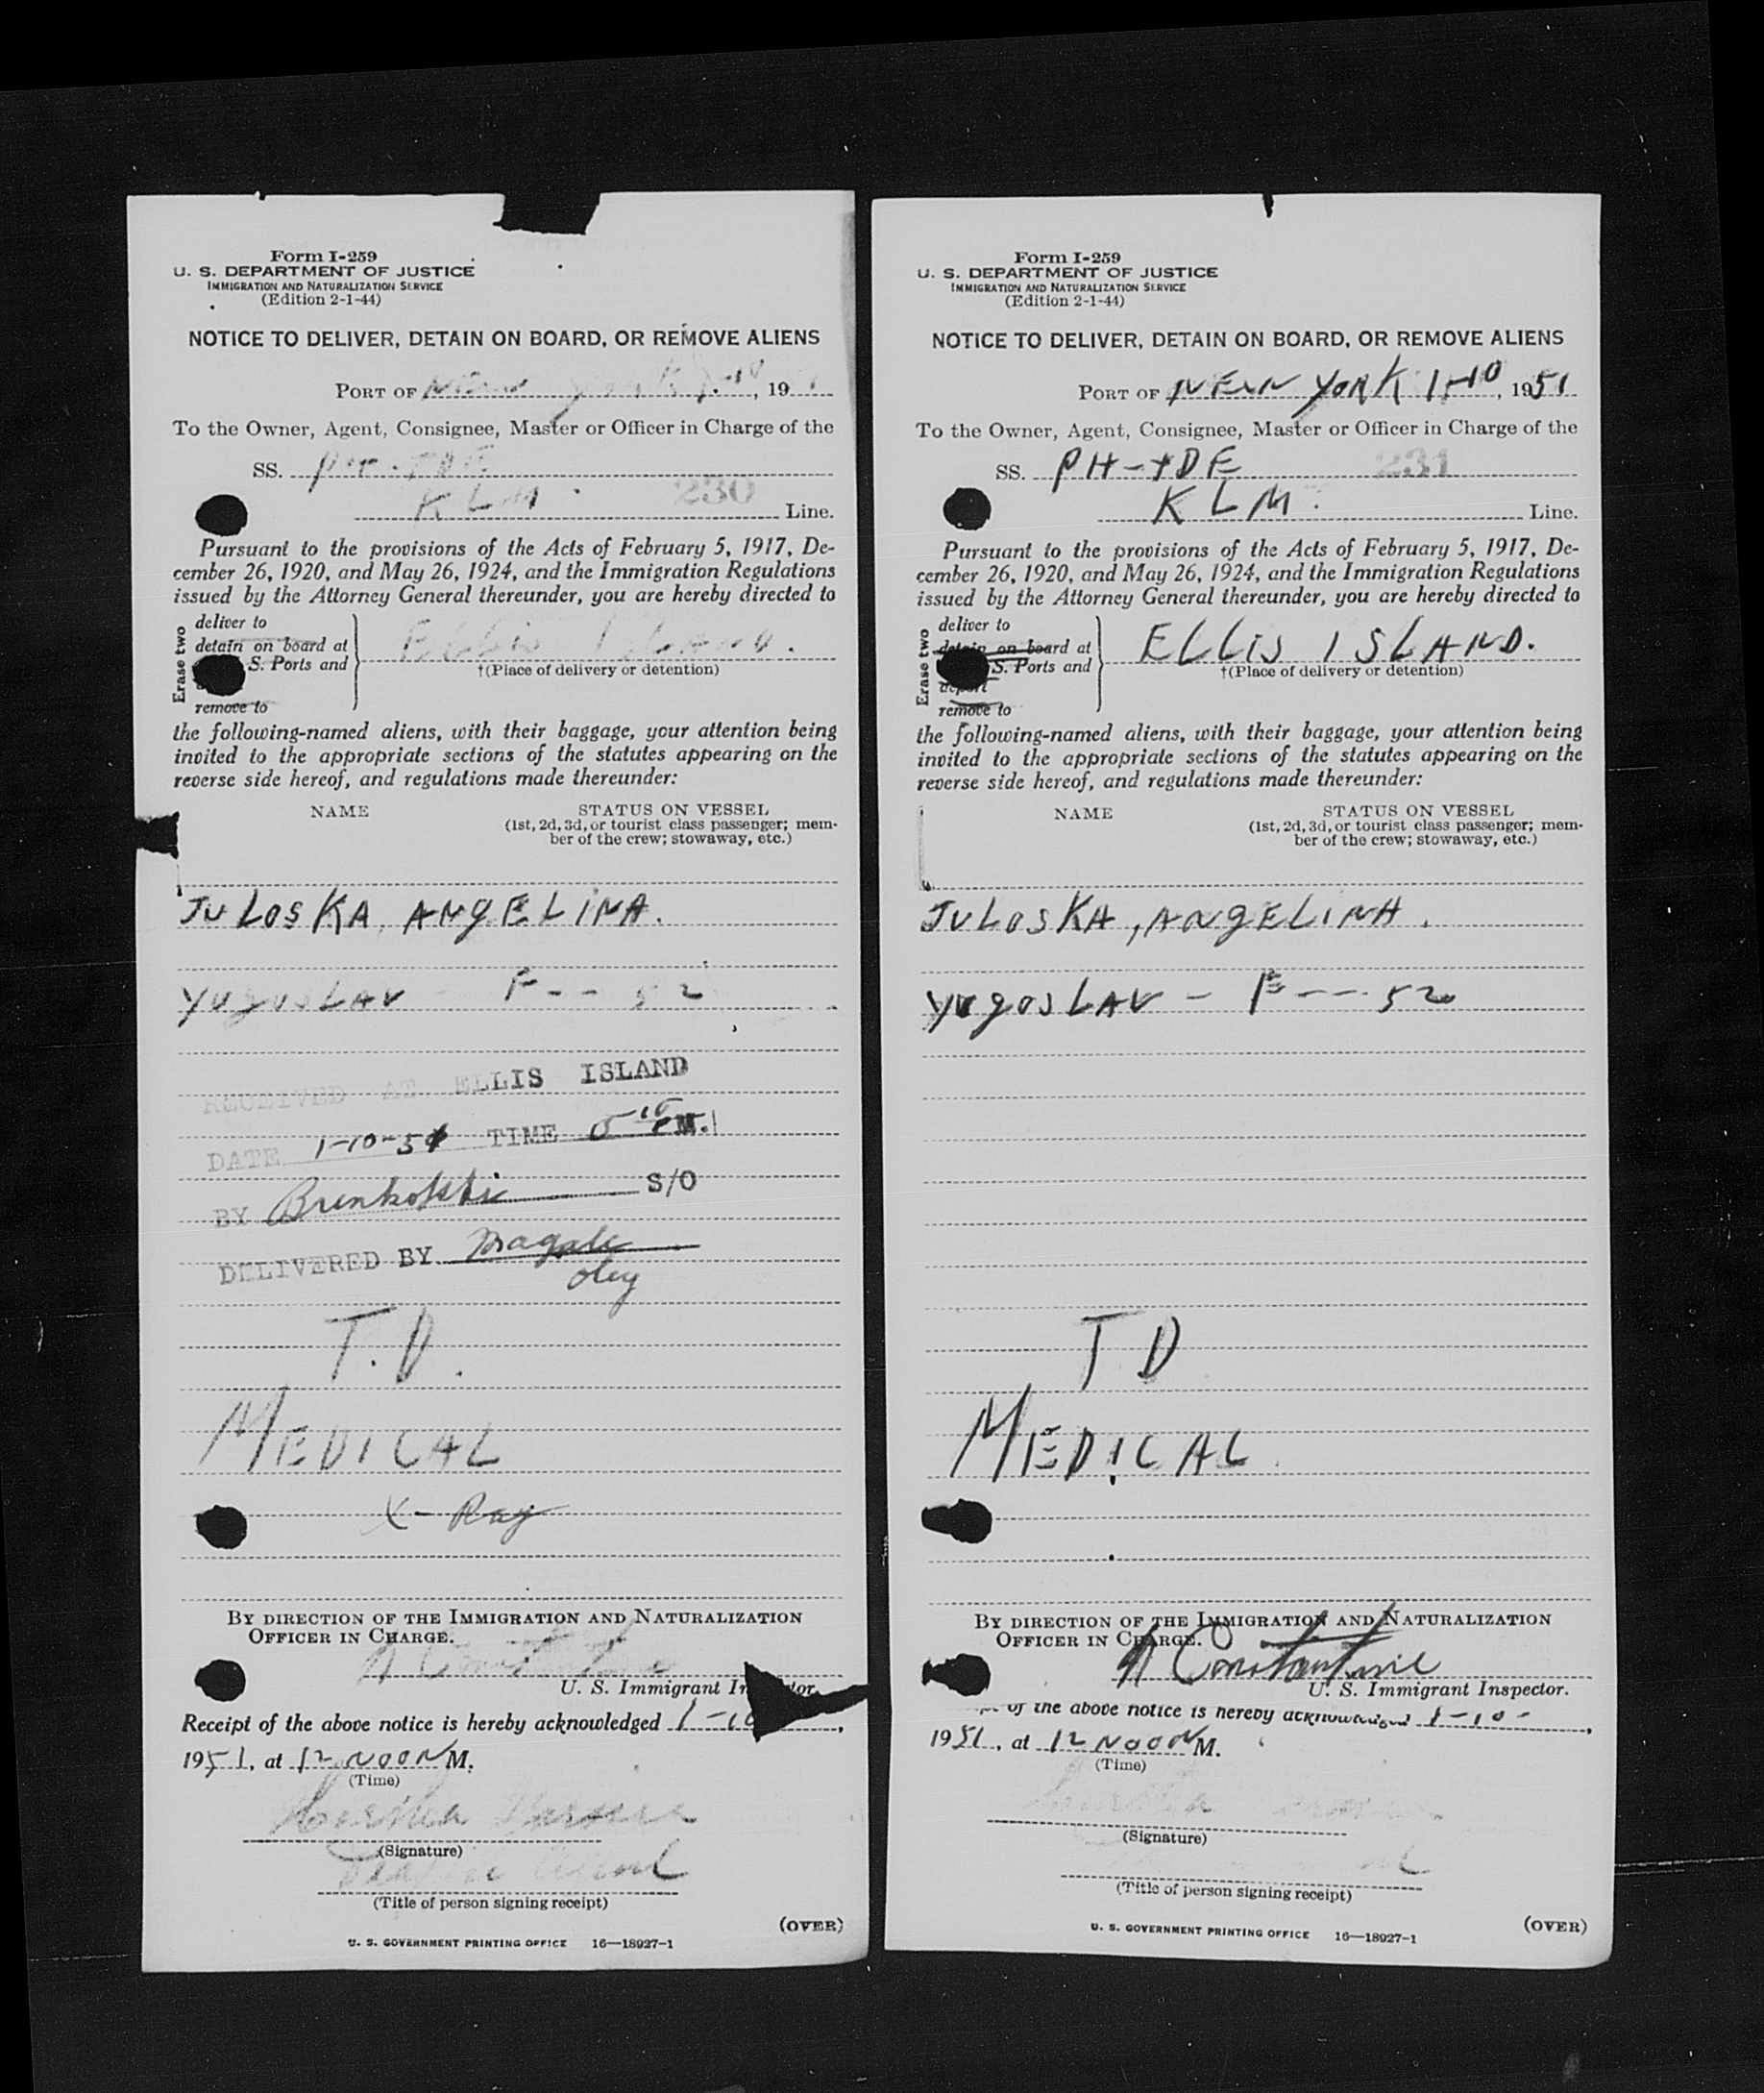 Form I-259
U. S. DEPARTMENT OF JUSTICE
IMMIGRATION AND NATURALIZATION SERVICE
(Edition 2-1-44)
NOTICE TO DELIVER, DETAIN ON BOARD, OR REMOVE ALIENS
PORT OF NEW YORK 1-10, 19
To the Owner, Agent, Consignee, Master or Officer in Charge of the
SS.
KLM. 230 Line.
Pursuant to the provisions of the Acts of February 5, 1917, De-
cember 26, 1920, and May 26, 1924, and the Immigration Regulations
issued by the Attorney General thereunder, you are hereby directed to
Erase two
deliver to
detain on board at
S. Ports and
remove to
ELLIS ISLAND.
†(Place of delivery or detention)
the following-named aliens, with their baggage, your attention being
invited to the appropriate sections of the statutes appearing on the
reverse side hereof, and regulations made thereunder:
NAME STATUS ON VESSEL
(1st, 2d, 3d, or tourist class passenger; mem-
ber of the crew; stowaway, etc.)
JULOSKA, ANGELINA.
YUGOSLAV - F - - 52
RECEIVED AT ELLIS ISLAND
DATE 1-10-51 TIME 5 10 P.M.
BY S/O
DELIVERED BY
T.D.
MEDICAL
X-Ray
BY DIRECTION OF THE IMMIGRATION AND NATURALIZATION
OFFICER IN CHARGE.
N Constantine
U. S. Immigrant
Receipt of the above notice is hereby acknowledged 1-10,
1951, at 12 NOON M.
(Time)
(Signature)
(Title of person signing receipt)
(OVER)
U. S. GOVERNMENT PRINTING OFFICE 16—18927-1
Form I-259
U. S. DEPARTMENT OF JUSTICE
IMMIGRATION AND NATURALIZATION SERVICE
(Edition 2-1-44)
NOTICE TO DELIVER, DETAIN ON BOARD, OR REMOVE ALIENS
PORT OF NEW YORK 1-10, 1951
To the Owner, Agent, Consignee, Master or Officer in Charge of the
SS. PH-TDE 231
KLM. Line.
Pursuant to the provisions of the Acts of February 5, 1917, De-
cember 26, 1920, and May 26, 1924, and the Immigration Regulations
issued by the Attorney General thereunder, you are hereby directed to
Erase two
deliver to
detain on board at
S. Ports and
deport
remove to
ELLIS ISLAND.
†(Place of delivery or detention)
the following-named aliens, with their baggage, your attention being
invited to the appropriate sections of the statutes appearing on the
reverse side hereof, and regulations made thereunder:
NAME STATUS ON VESSEL
(1st, 2d, 3d, or tourist class passenger; mem-
ber of the crew; stowaway, etc.)
JULOSKA, ANGELINA.
YUGOSLAV - F --- 52
T D
MEDICAL
BY DIRECTION OF THE IMMIGRATION AND NATURALIZATION
OFFICER IN CHARGE.
N Constantine
U. S. Immigrant Inspector.
of the above notice is hereby acknowledged 1-10-,
1951, at 12 NOON M.
(Time)
(Signature)
(Title of person signing receipt)
(OVER)
U. S. GOVERNMENT PRINTING OFFICE 16—18927-1